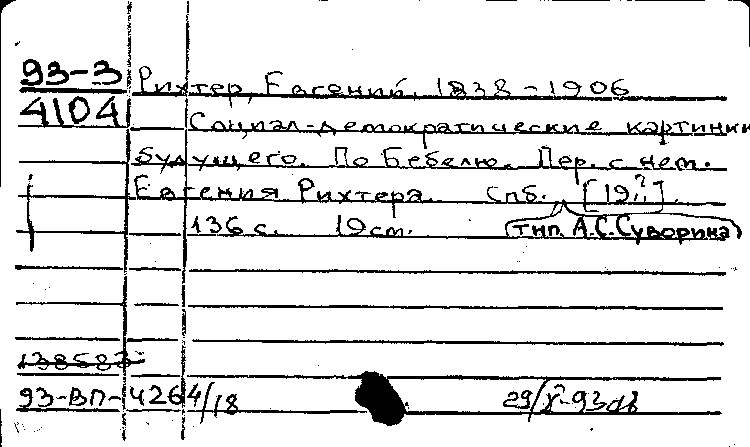 93-3
4104
Рихтер, Евгений, 1838-1906
Социал-демократические картинки
будущего. По Бебелю. Пер. с нем.
Евгения Рихтера. Спб. [19??].
136 с. 19 см. (тип. А.С. Суворина)
138583
93-ВП-4264/18 29/X-93